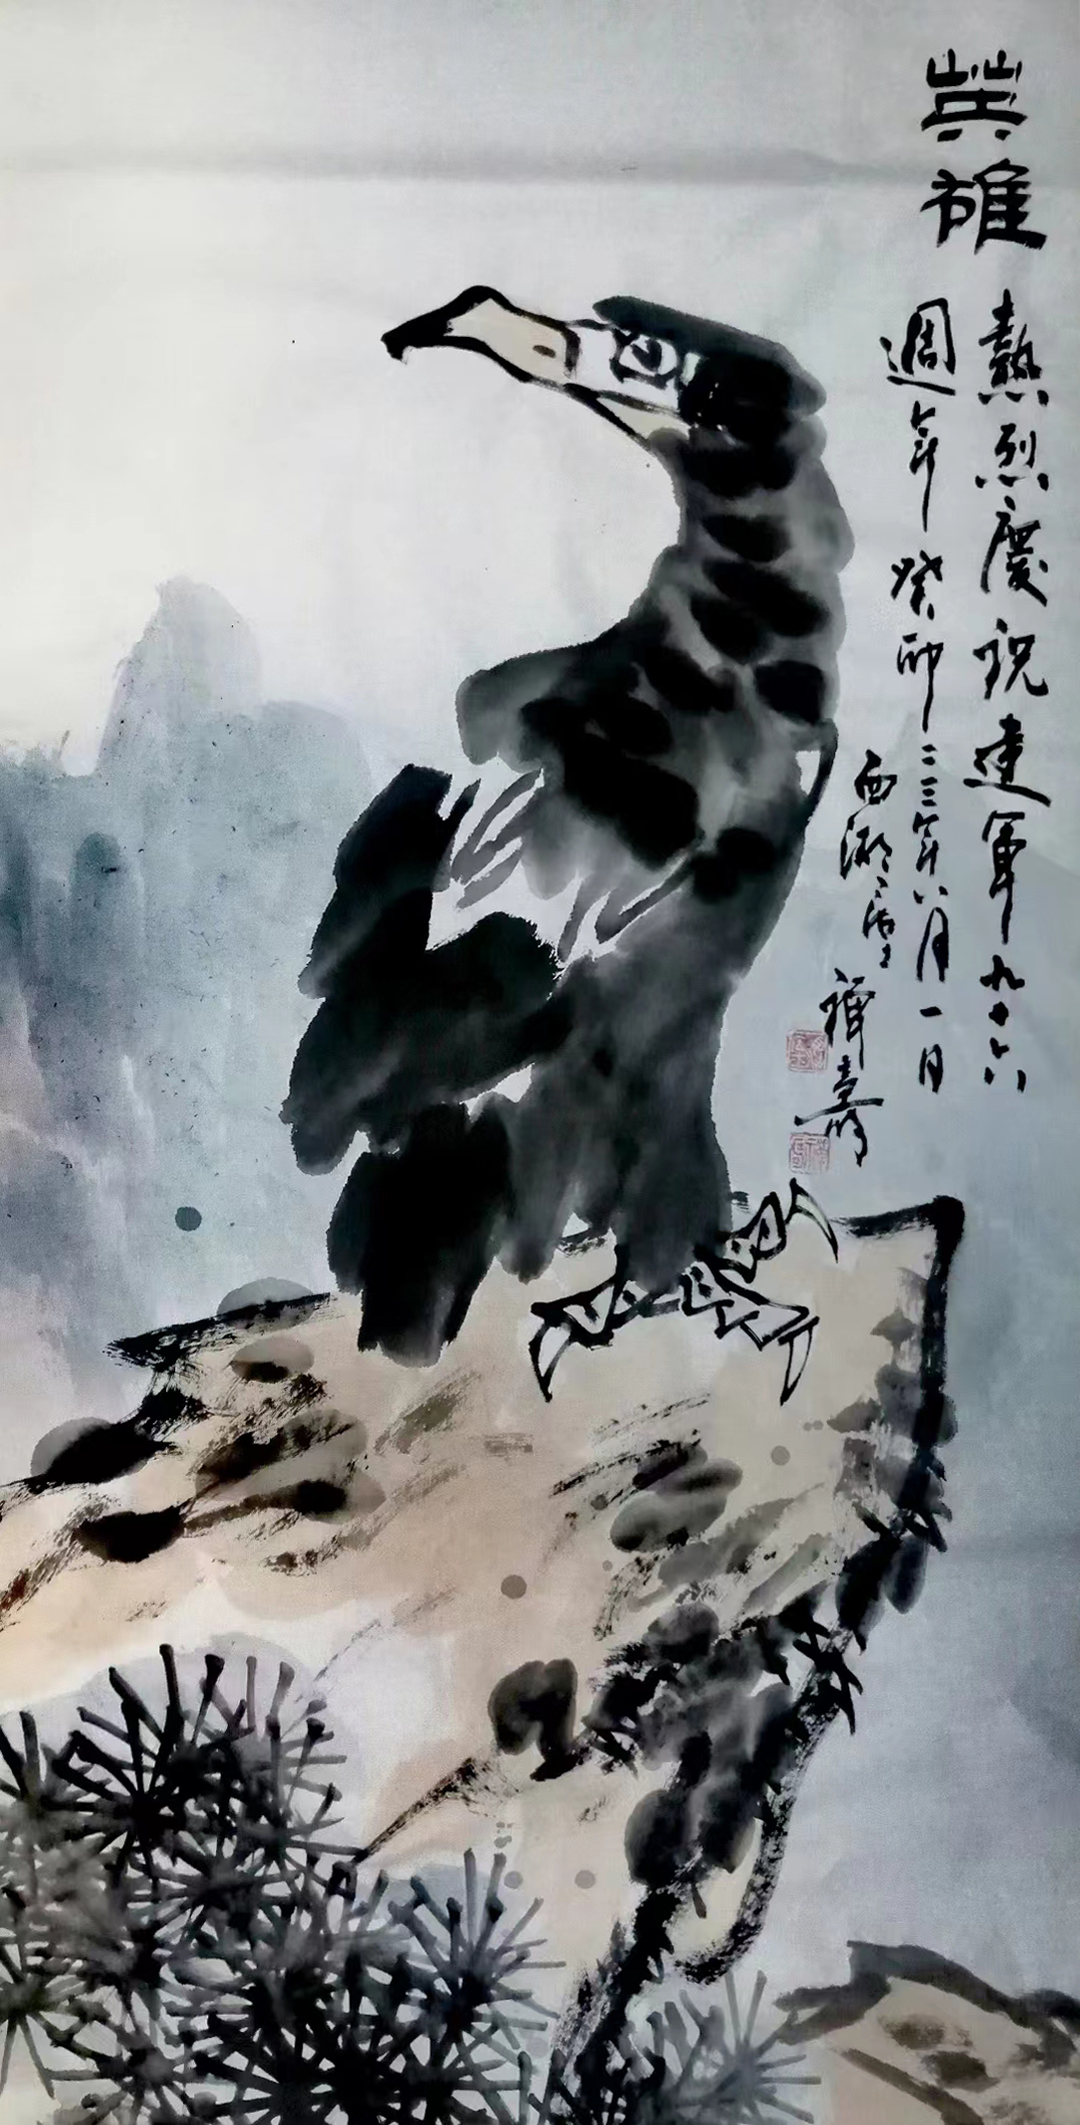 英雄
熱烈慶祝建軍九十六
週年癸卯二〇二三年八月一日
西湖